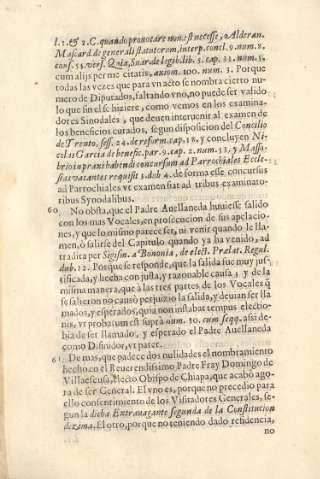 l. 1. & 2. C. quando prouocare non est necesse, & Alderan.
Mascard. de generali statutorum, interp. concl. 9. num. 2.
conf. 55. vers. Quia, Suar. de legib. lib. 5. cap. 22. num. 5.
cum alijs per me citatis, auiom. 100. num. 3. Porque
todas las vezes que para vn acto se nombra cierto nu-
mero de Diputados, faltando vno, no puede ser valido
lo que sin el se hiziere, como vemos en los examina-
dores Sinodales, que deuen interuenir al examen de
los beneficios curados, segun disposicion del Concilio
de Trento, sess. 24. de reform. cap. 18. y concluyen Ni-
colaus Garcia de benefic. par. 9. cap. 2. num. 53. y Massu-
brio in praxi habendi concursum ad Parrochiales Eccle-
sias vacantes requisit 3. dub. 4. de forma esse concursus
ad Parrochiales vt examen fiat ad tribus examinato-
ribus Synodalibus.
60 No obsta, que el Padre Auellaneda huuiesse salido
con los mas Vocales, en prosecucion de sus apelacio-
nes, y que lo mismo parece ser, ni venir quando le lla-
men, ò salirse del Capitulo quando ya ha venido, ad
tradita per Sigism. a Bononia, de elect. Prelat. Regul.
dub. 12. Porque se responde, que la salida fue muy jus-
tificada, y hecha con justa, y razonable causa, y de la
misma manera, que à las tres partes de los Vocales q̃
se salieron no causò perjuizio la salida, y deuian ser lla-
mados, y esperados, quia non instabat tempus electio-
nis, vt probatum est suprà num. 30. cum seqq. assi de-
bia de ser llamado, y esperado el Padre Auellaneda
como Difinidor, vt patet.
61 De mas, que padece dos nulidades el nombramiento
hecho en el Reuerendissimo Padre Fray Domingo de
Villaescusa, Electo Obispo de Chiapa, que acabò agó-
ra de ser General. El vno es, porque no precedio para
ello consentimiento de los Visitadores Generales, se-
gun la dicha Extrauagante segunda de la Constitucion
dezima. El otro, porque no teniendo dado residencia,
no